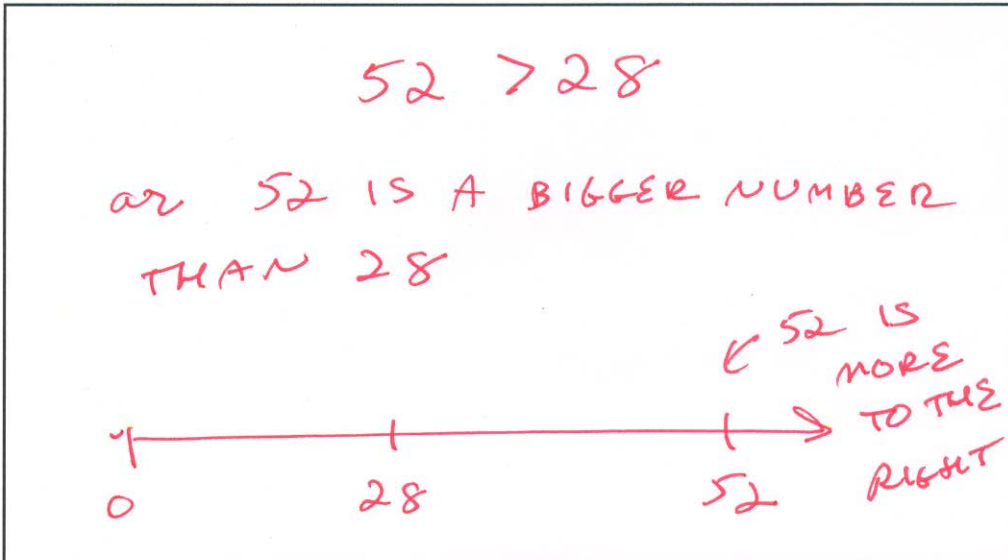 52 > 28
or 52 IS A BIGGER NUMBER
THAN 28
52 IS
MORE
TO THE
RIGHT
0 28 52